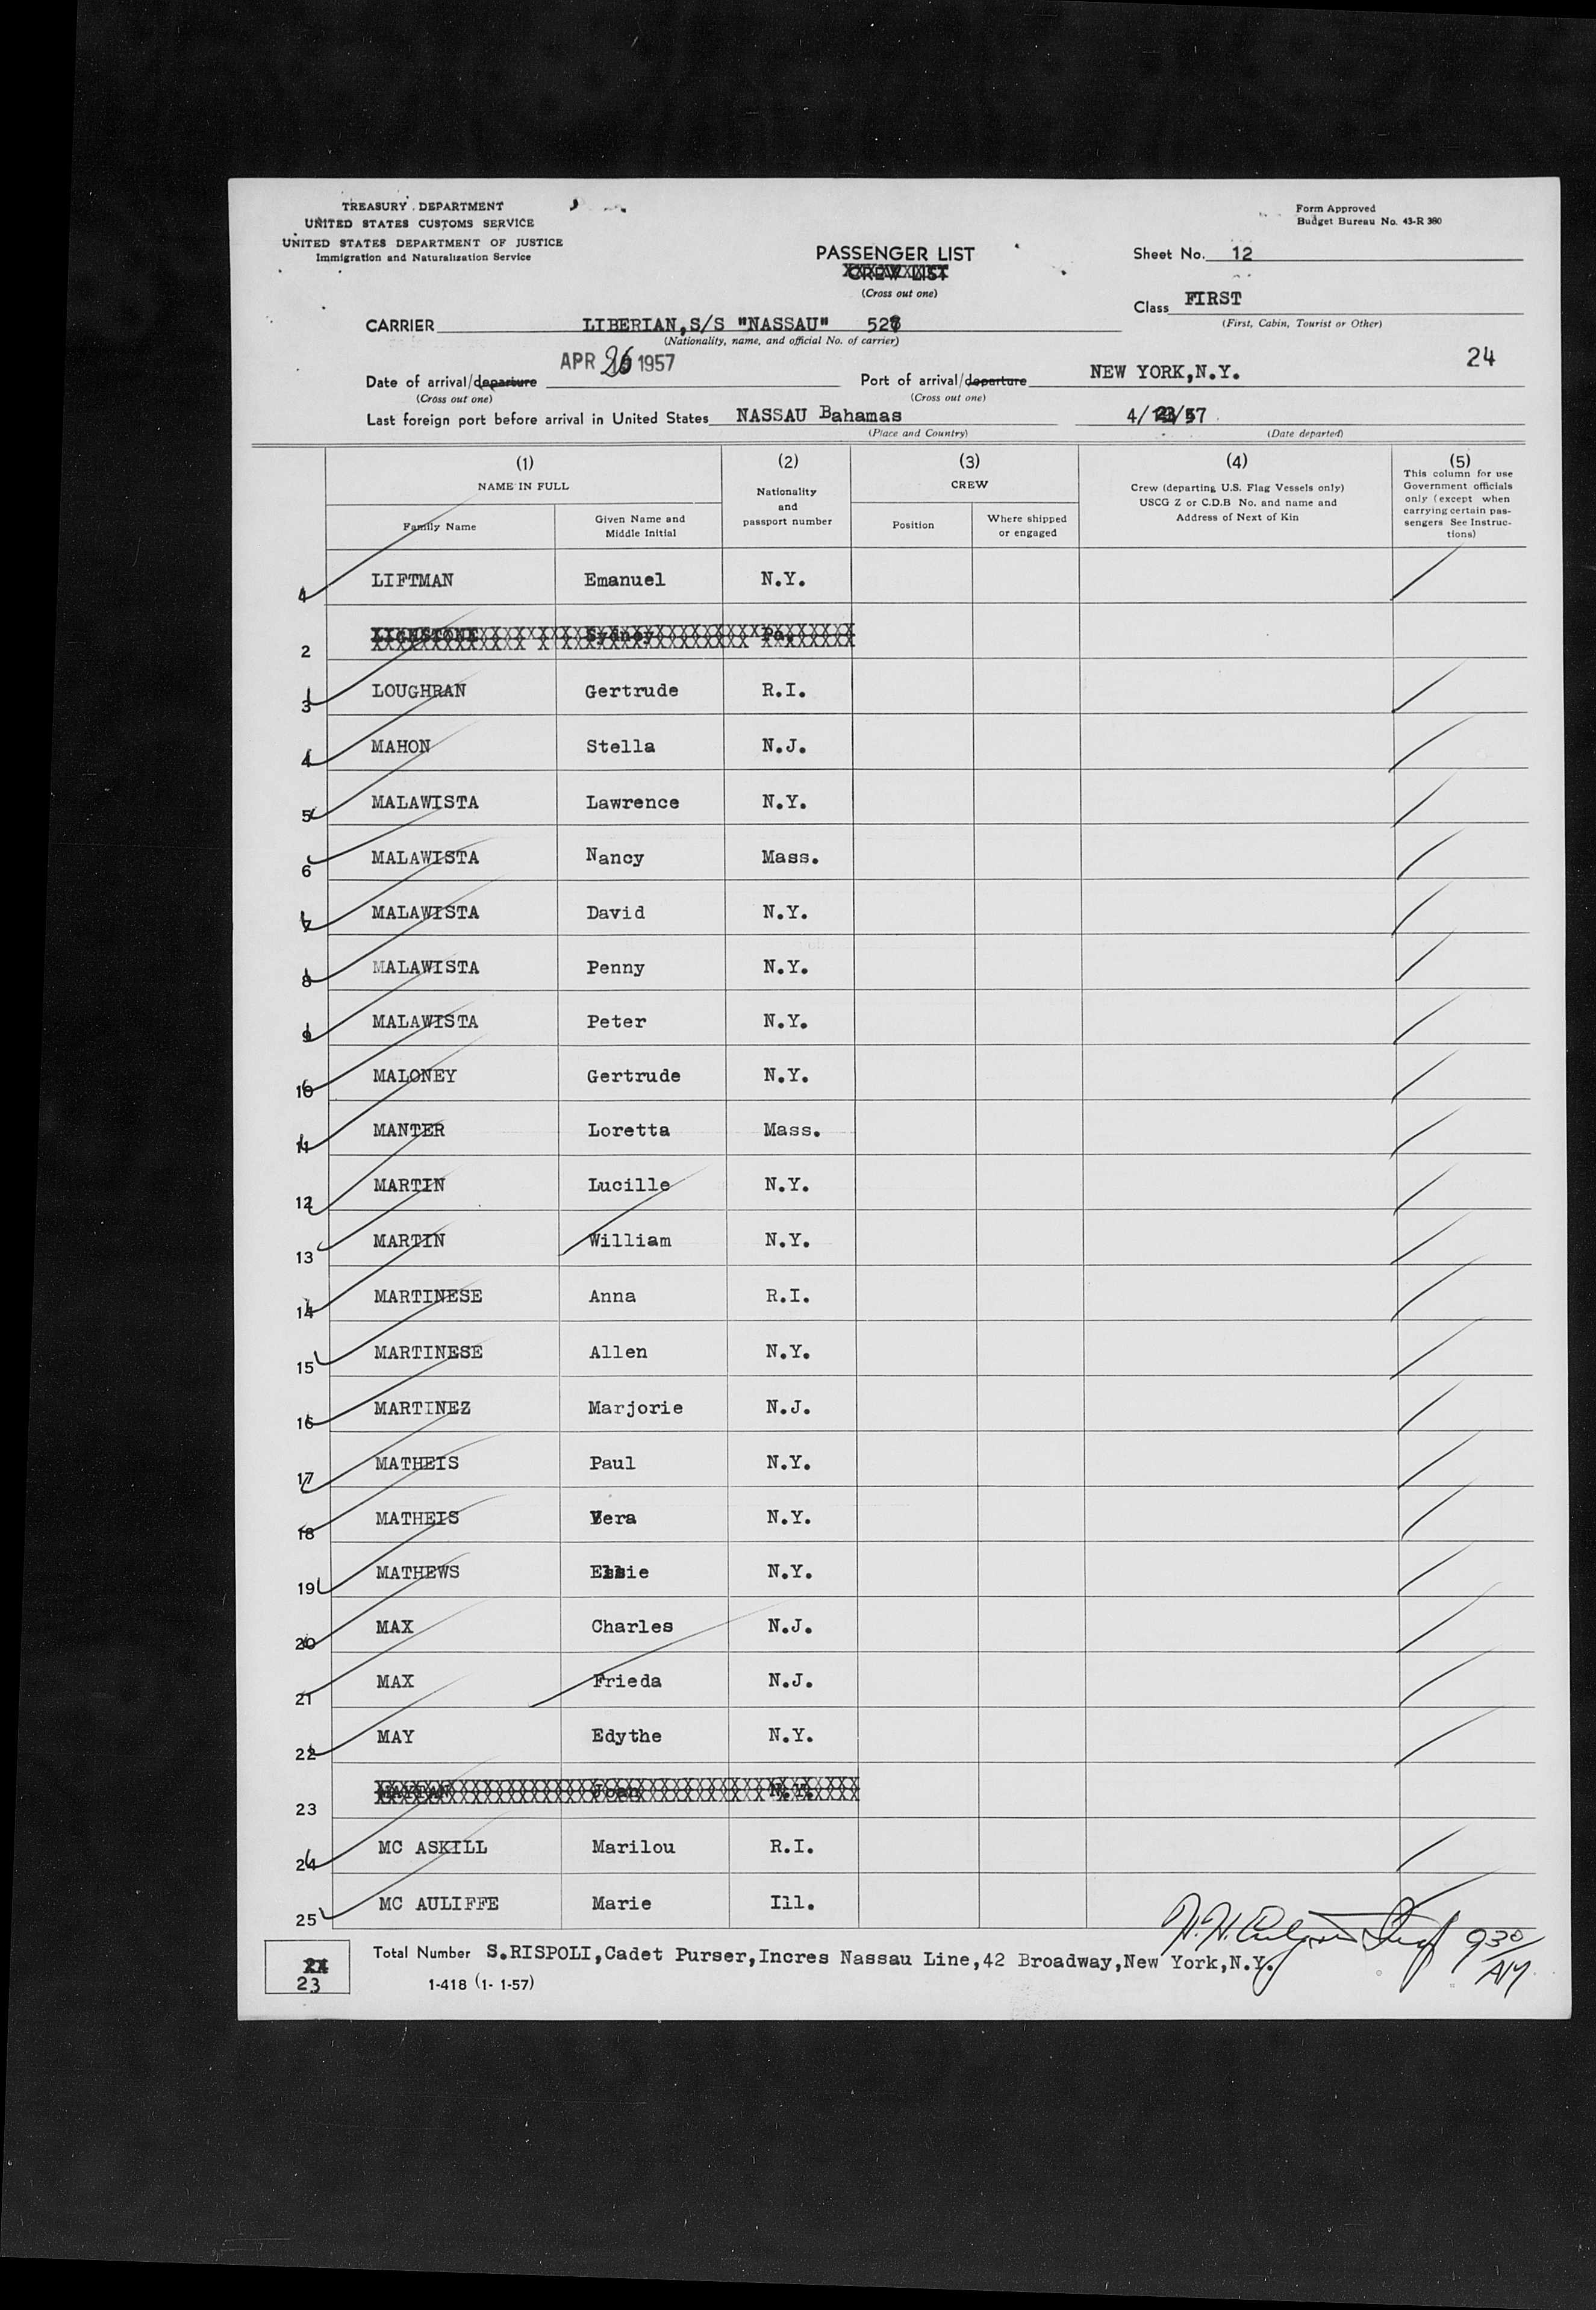 TREASURY DEPARTMENT
UNITED STATES CUSTOMS SERVICE
UNITED STATES DEPARTMENT OF JUSTICE
Immigration and Naturalization Service
Form Approved
Budget Bureau No. 43-R 380
PASSENGER LIST
CREW LIST
(Cross out one)
Sheet No. 12
Class FIRST
(First, Cabin, Tourist or Other)
CARRIER LIBERIAN,S/S "NASSAU"
(Nationality, name, and official No. of carrier)
APR 26 1957
24
Date of arrival/departure
(Cross out one)
Port of arrival/departure NEW YORK,N.Y.
(Cross out one)
Last foreign port before arrival in United States NASSAU Bahamas 4/23/57
(Place and Country) (Date departed)
(1) (2) (3) (4) (5)
NAME IN FULL
Nationality and passport number
CREW
Crew (departing U.S. Flag Vessels only) USCG Z or C.D.B No. and name and Address of Next of Kin
This column for use Government officials only (except when carrying certain passengers See Instructions)
Family Name
Given Name and Middle Initial
Position
Where shipped or engaged
LIFTMAN Emanuel N.Y.
2 Sydney Pa.
3 LOUGHRAN Gertrude R.I.
4 MAHON Stella N.J.
5 MALAWISTA Lawrence N.Y.
6 MALAWISTA Nancy Mass.
7 MALAWISTA David N.Y.
8 MALAWISTA Penny N.Y.
9 MALAWISTA Peter N.Y.
10 MALONEY Gertrude N.Y.
11 MANTER Loretta Mass.
12 MARTIN Lucille N.Y.
13 MARTIN William N.Y.
14 MARTINESE Anna R.I.
15 MARTINESE Allen N.Y.
16 MARTINEZ Marjorie N.J.
17 MATHEIS Paul N.Y.
18 MATHEIS Vera N.Y.
19 MATHEWS N.Y.
20 MAX Charles N.J.
21 MAX Frieda N.J.
22 MAY Edythe N.Y.
23 Joan N.Y.
24 MC ASKILL Marilou R.I.
25 MC AULIFFE Marie Ill.
23
Total Number S.RISPOLI,Cadet Purser,Incres Nassau Line,42 Broadway,New York,N.Y.
930 AM
1-418 (1- 1-57)